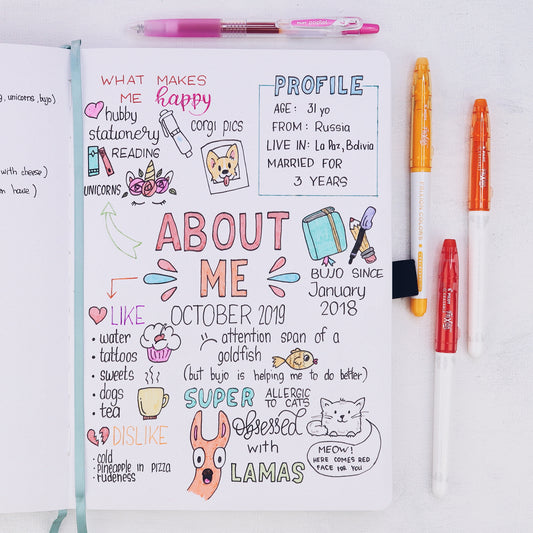 , unicorns, bujo)
with cheese)
WHAT MAKES
ME happy
hubby
stationery
corgi pics
READING
UNICORNS
PROFILE
AGE: 31 yo
FROM: Russia
LIVE IN: La Paz, Bolivia
MARRIED FOR
3 YEARS
ABOUT
ME
BUJO SINCE
January
2018
OCTOBER 2019
LIKE
• water
• tattoos
• sweets
• dogs
• tea
attention span of a
goldfish
(but bujo is helping me to do better)
SUPER
ALLERGIC
TO CATS
DISLIKE
• cold
• pineapple in pizza
• rudeness
Obsessed
with
LAMAS
MEOW!
HERE COMES RED
FACE FOR YOU